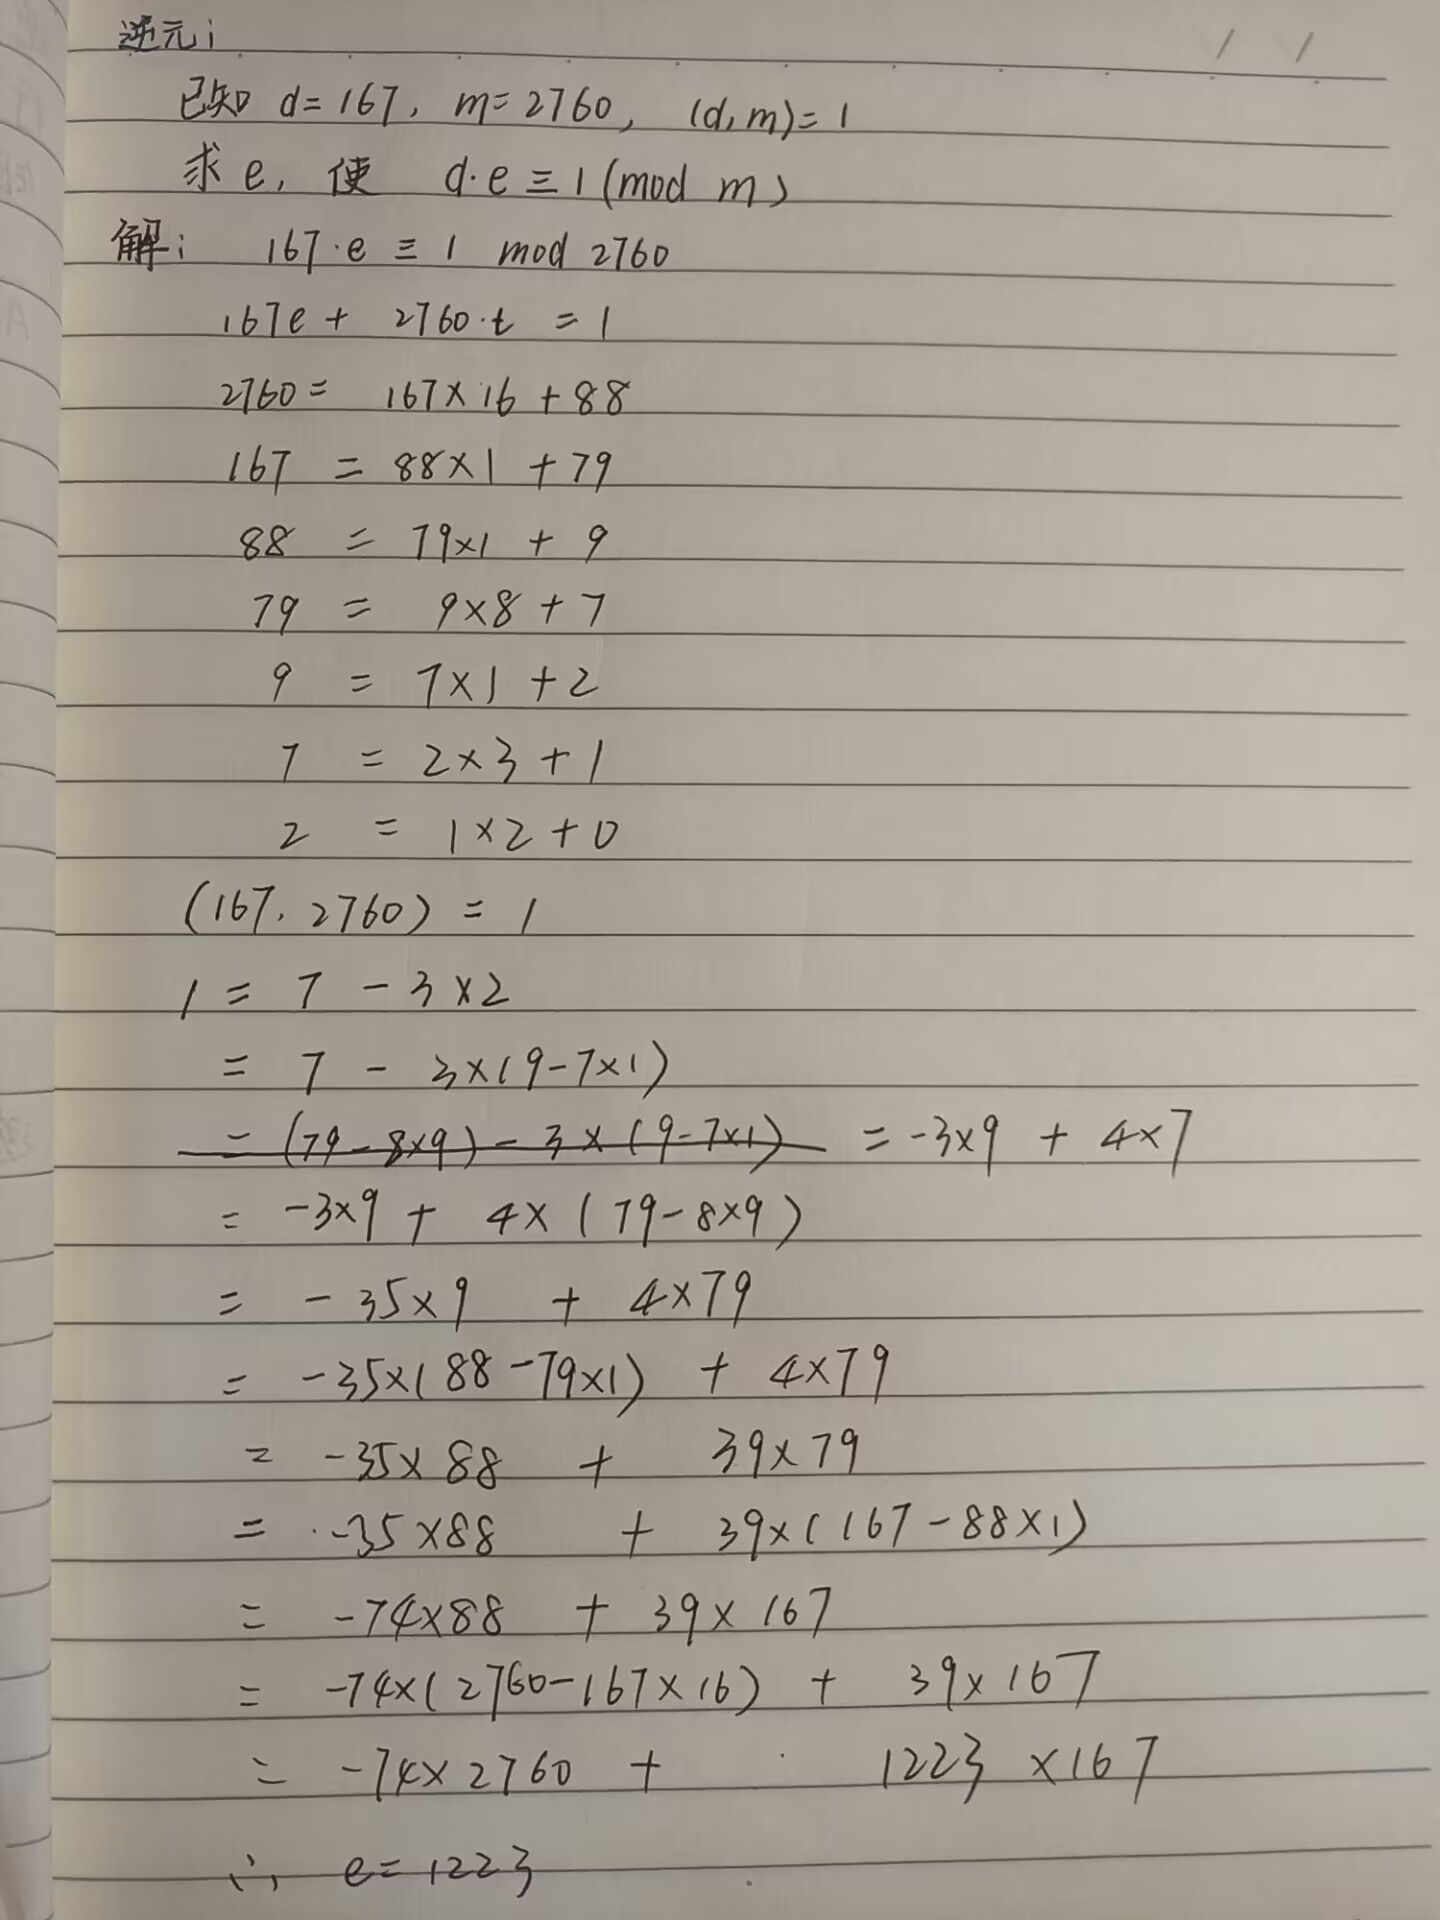 逆元:
已知 d=167, m=2760, (d,m)=1
求 e, 使 d·e≡1(mod m)
解: 167·e ≡ 1 mod 2760
167e + 2760·t = 1
2760 = 167×16+88
167 = 88×1+79
88 = 79×1+9
79 = 9×8+7
9 = 7×1+2
7 = 2×3+1
2 = 1×2+0
(167, 2760) = 1
1 = 7-3×2
= 7 - 3×(9-7×1)
= (79-8×9)-3×(9-7×1) = -3×9 + 4×7
= -3×9 + 4×(79-8×9)
= -35×9 + 4×79
= -35×(88-79×1) + 4×79
= -35×88 + 39×79
= -35×88 + 39×(167-88×1)
= -74×88 + 39×167
= -74×(2760-167×16) + 39×167
= -74×2760 + 1223×167
∴ e=1223